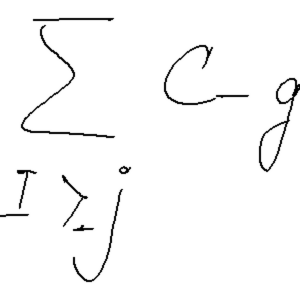 \sum_{I \geq j} C - g